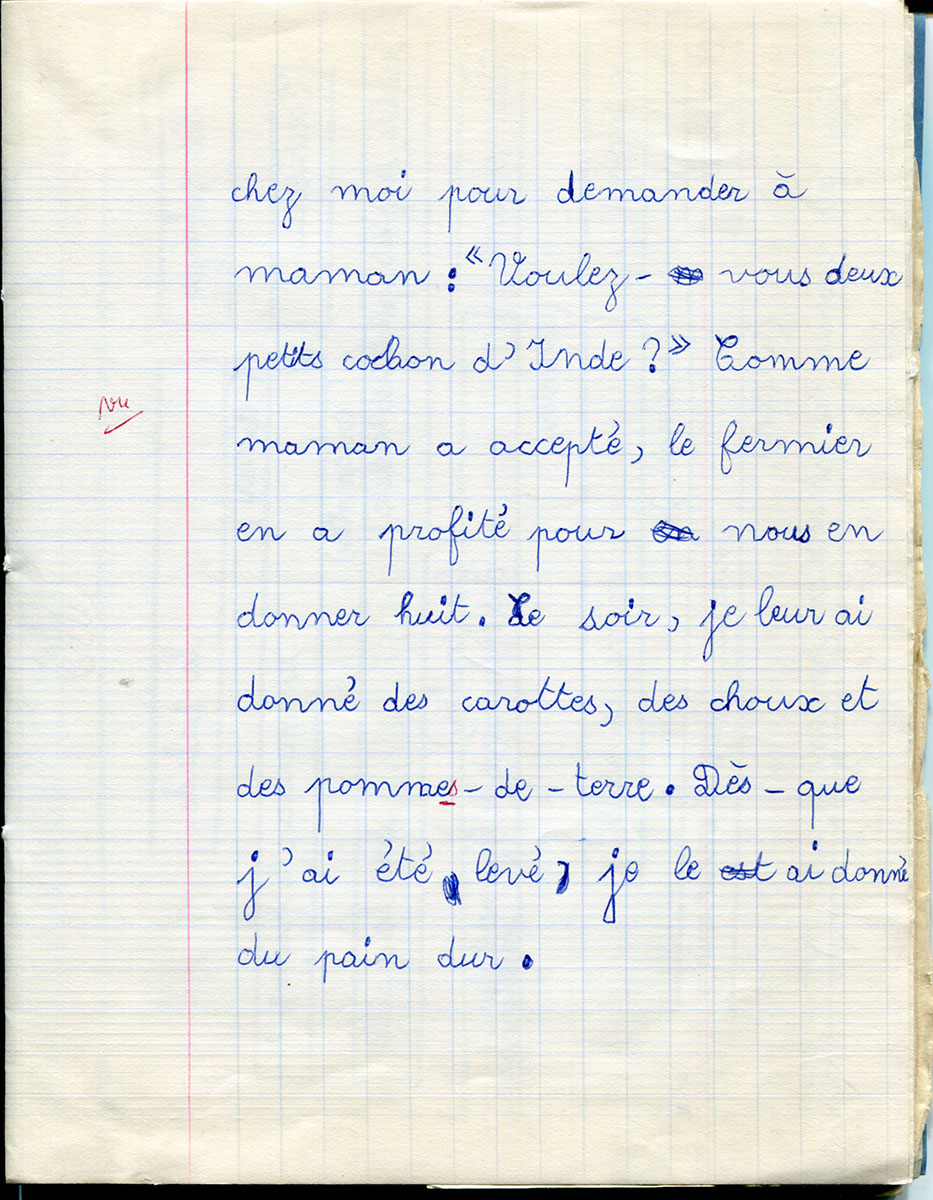 chez moi pour demander à
maman : « Voulez- vous deux
petits cochon d'Inde ? » Comme
vu
maman a accepté, le fermier
en a profité pour nous en
donner huit. Le soir, je leur ai
donné des carottes, des choux et
des pommes-de-terre. Dès-que
j'ai été levé, je le est ai donné
du pain dur.